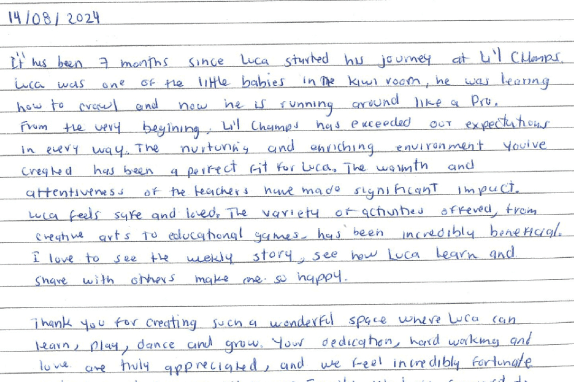 14/08/2024
It has been 7 months since Luca started his journey at Li'l Champs.
Luca was one of the little babies in the Kiwi room, he was learing
how to crawl and now he is running around like a Pro.
From the very begijing, Li'l Champs has exceeded our expectations
in every way. The nurturing and enriching environment you've
created has been a perfect fit for Luca. The warmth and
attentiveness of the teachers have made significant impact.
Luca feels safe and loved. The variety of activities offered, from
creative arts to educational games. has been incredibly beneficial.
I love to see the wekly story, see how Luca learn and
share with others make me so happy.
Thank you for creating such a wonderful space where Luca can
learn, play, dance and grow. Your dedication, hard working and
love are truly appreciated, and we feel incredibly fortunate